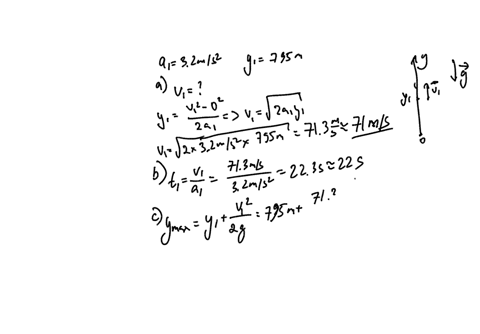 a₁=3.2m/s² y₁=795m
a) v₁=?
y₁=(v₁²-0²)/(2a₁) => v₁=√(2a₁y₁)
v₁=√(2×3.2m/s²×795m)=71.3m/s≈71m/s
b) t₁=v₁/a₁=(71.3m/s)/(3.2m/s²)=22.3s≈22s
c) y max=y₁+v₁²/2g=795m+71.?
y
g⃗
y₁
v⃗₁
0